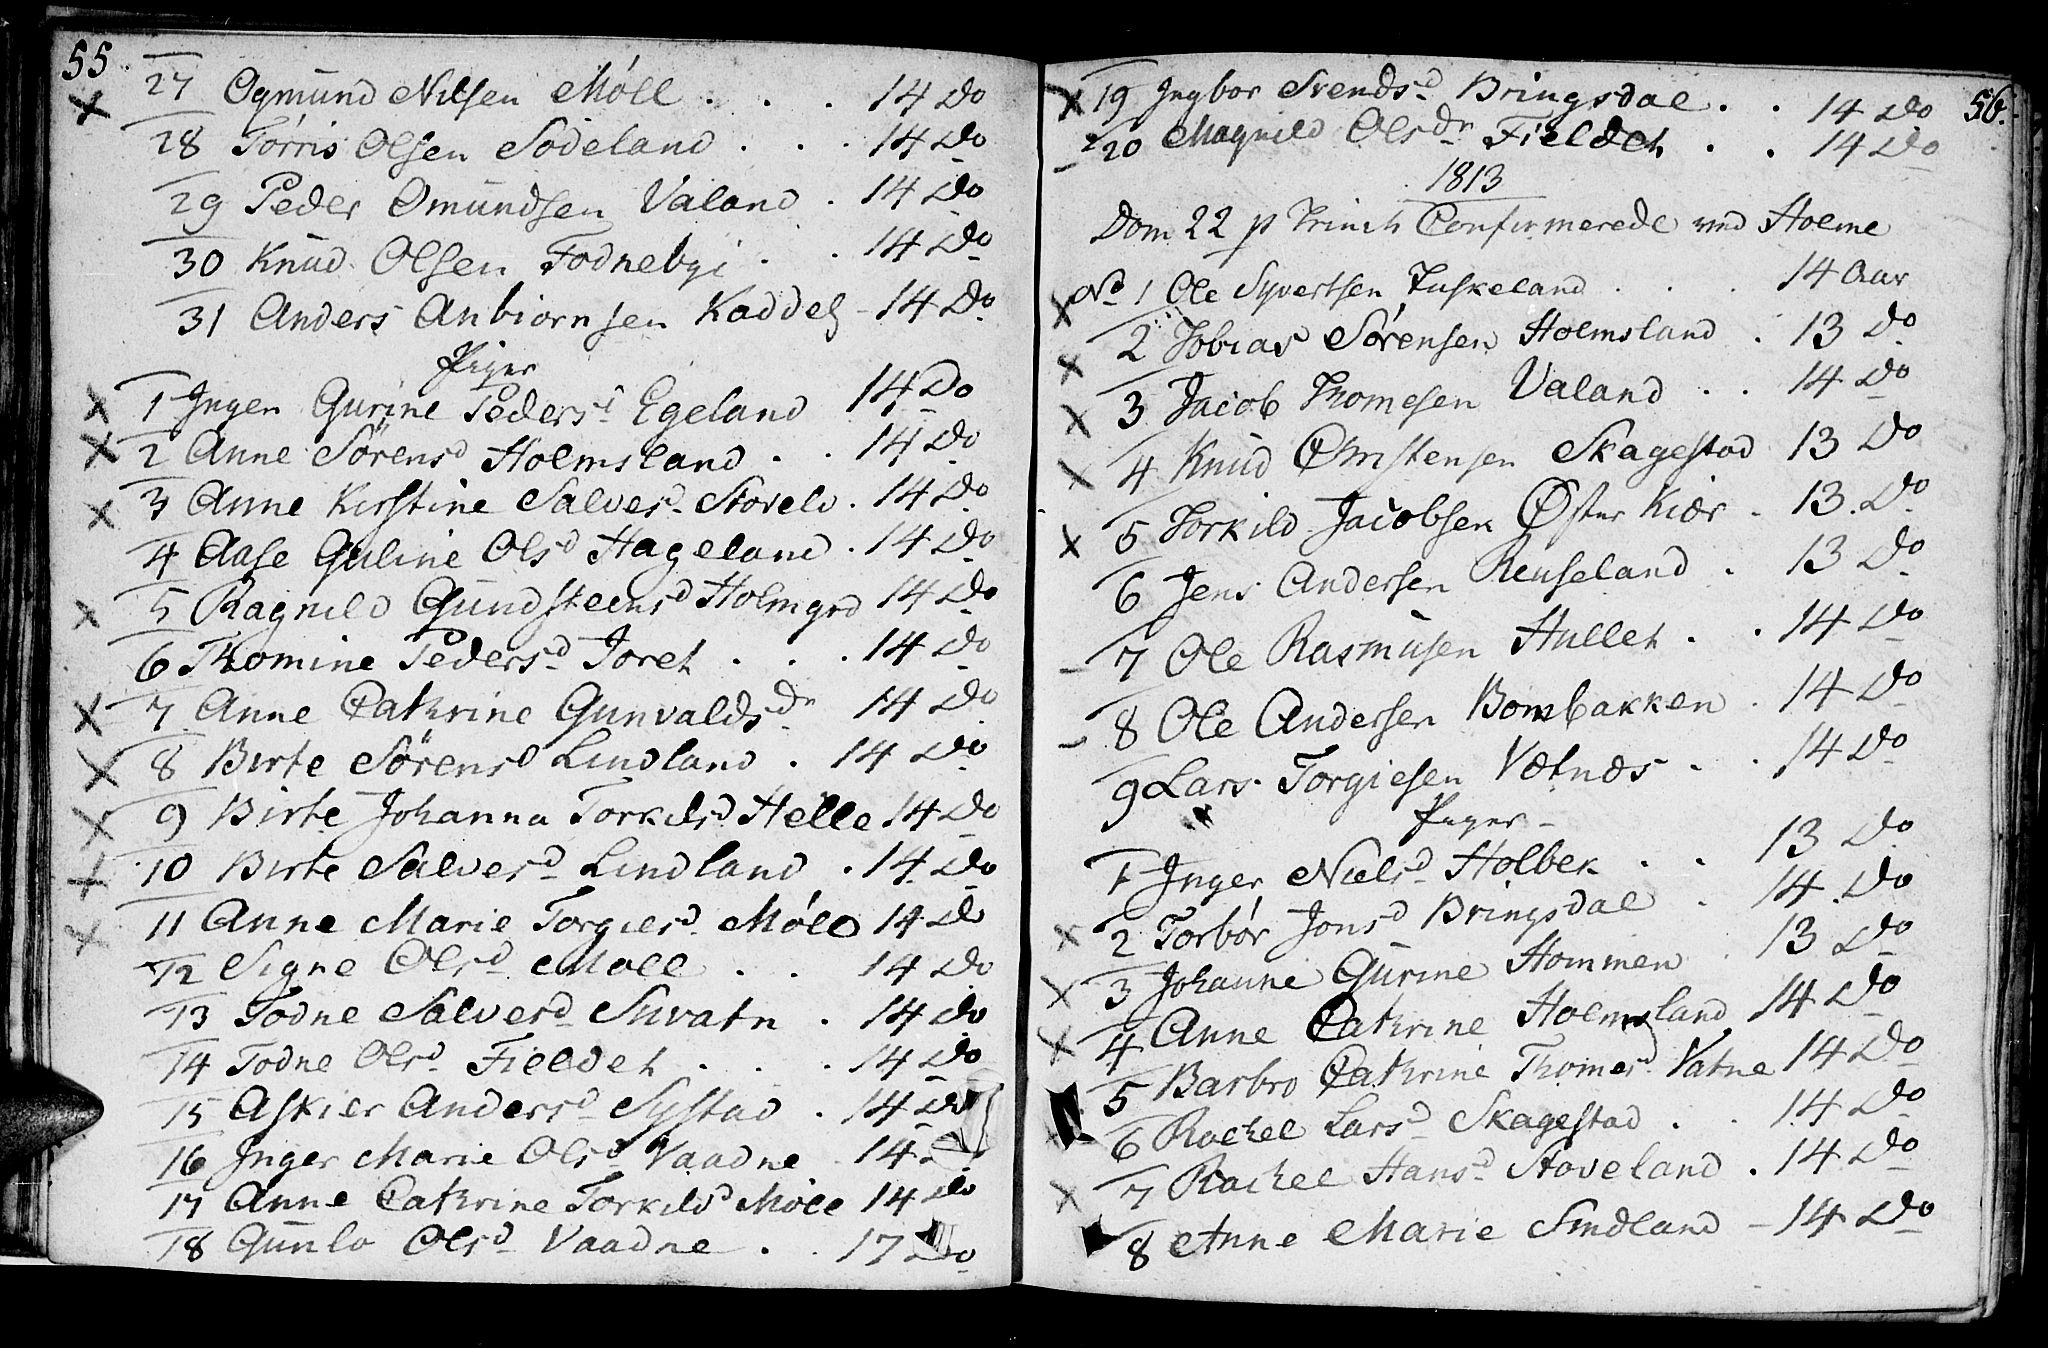 55
27 Ogmund Nilsen Møll . . . 14 Do
28 Tørris Olsen Sødeland . . . 14 Do
29 Peder Omundsen Valand . 14 Do
30 Knud Olsen Fodnebyi . . 14 Do
31 Anders Anbiørnsen Kaddeb - 14 Do
Piger
1 Ingen Gurine Pedersd Egeland 14 Do
2 Anne Sørensd Holmsland . . 14 Do
3 Anne Kirstine Salvesd Stovelv . 14 Do
4 Aase Guline Olsd Hageland . 14 Do
5 Ragnild Gundsteensd Holmgrd 14 Do
6 Thomine Pedersd Joreh . . . 14 Do
7 Anne Cathrine Gunvaldsdr 14 Do
8 Birte Sørensd Lindland . 14 Do
9 Birte Johanna Torkilsd Helle 14 Do
10 Birte Salvesd Lindland . 14 Do
11 Anne Marie Torgiersd Møll 14 Do
12 Signe Olsd Møll . . 14 Do
13 Todne Salvesd Suvatn . 14 Do
14 Todne Olsd Fieldeh . . . 14 Do
15 Askier Andersd Systad . 14 Do
16 Inger Marie Olsd Vaadne 14
17 Anne Cathrine Torkilsd Møll 14 Do
18 Gunlo Olsd Vaadne . . 17 Do
56.
19 Ingbor Svendsd Bringsdal . . 14 Do
20 Magnild Olsdr Fieldeh . . 14 Do
1813
Dom 22 p Trinit Confirmerede ved Holme
No 1 Ole Syvertsen Tuskeland . . . 14 Aar
2 Tobias Sørensen Holmsland . 13 Do
3 Jacob Thomesen Valand . . 14 Do
4 Knud Christensen Skagestad 13 Do
5 Torkild Jacobsen Øster Kiær . 13 Do
6 Jens Andersen Reuseland . 13 Do
7 Ole Rasmusen Hulleh . . 14 Do
8 Ole Andersen Bombakken . 14 Do
9 Lars Torgiesen Vatnæs . . 14 Do
Piger -
1 Inger Nielsd Holbek . . 13 Do
2 Torbør Jonsd Bringsdal . 14 Do
3 Johanne Gurine Hommen . 13 Do
4 Anne Cathrine Holmsland 14 Do
5 Barbro Cathrine Thomesd Vatne 14 Do
6 Rachel Larsd Skagestad . . 14 Do
7 Rachel Hansd Stoveland . 14 Do
8 Anne Marie Sindland - 14 Do